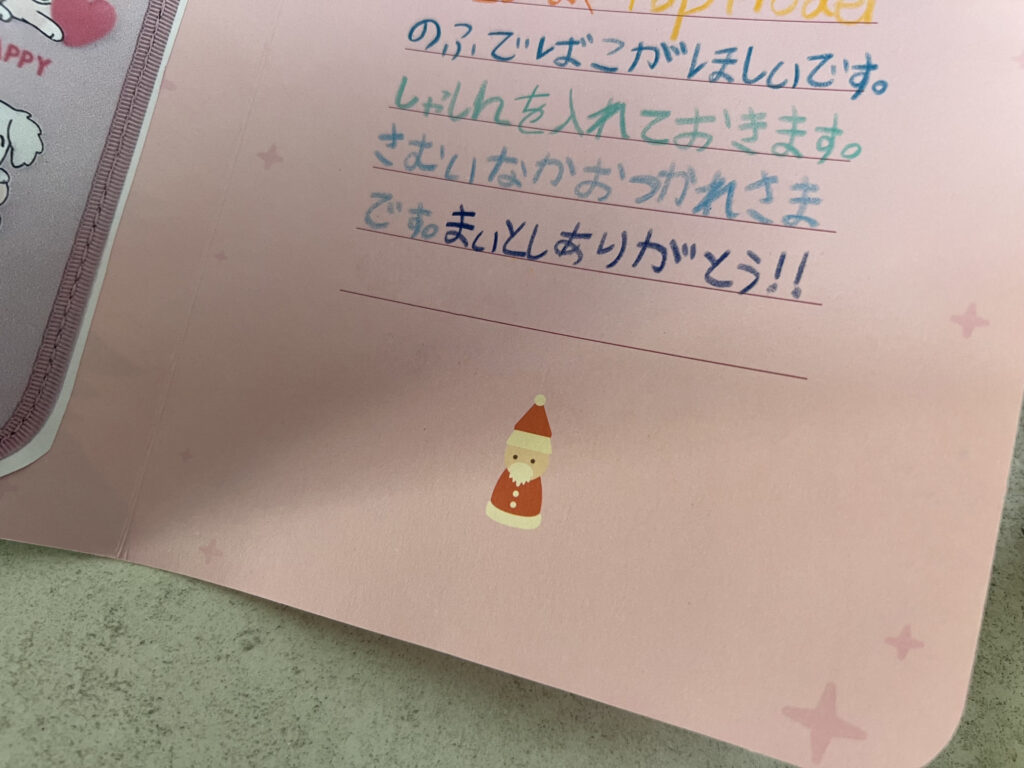 APPY
Top Model
のふでばこがほしいです。
しゃしんを入れておきます。
さむいなかおつかれさま
です。まいとしありがとう!!